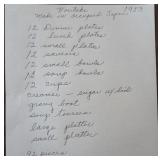 Noritake 1953
Made in Occupied Japan
12 Dinner plates
12 lunch plates
12 small plates
12 saucers
12 small bowls
12 soup bowls
12 cups
creamer - sugar w/lid
gravy boat
soup tureen
large platter
small platter
92 pieces